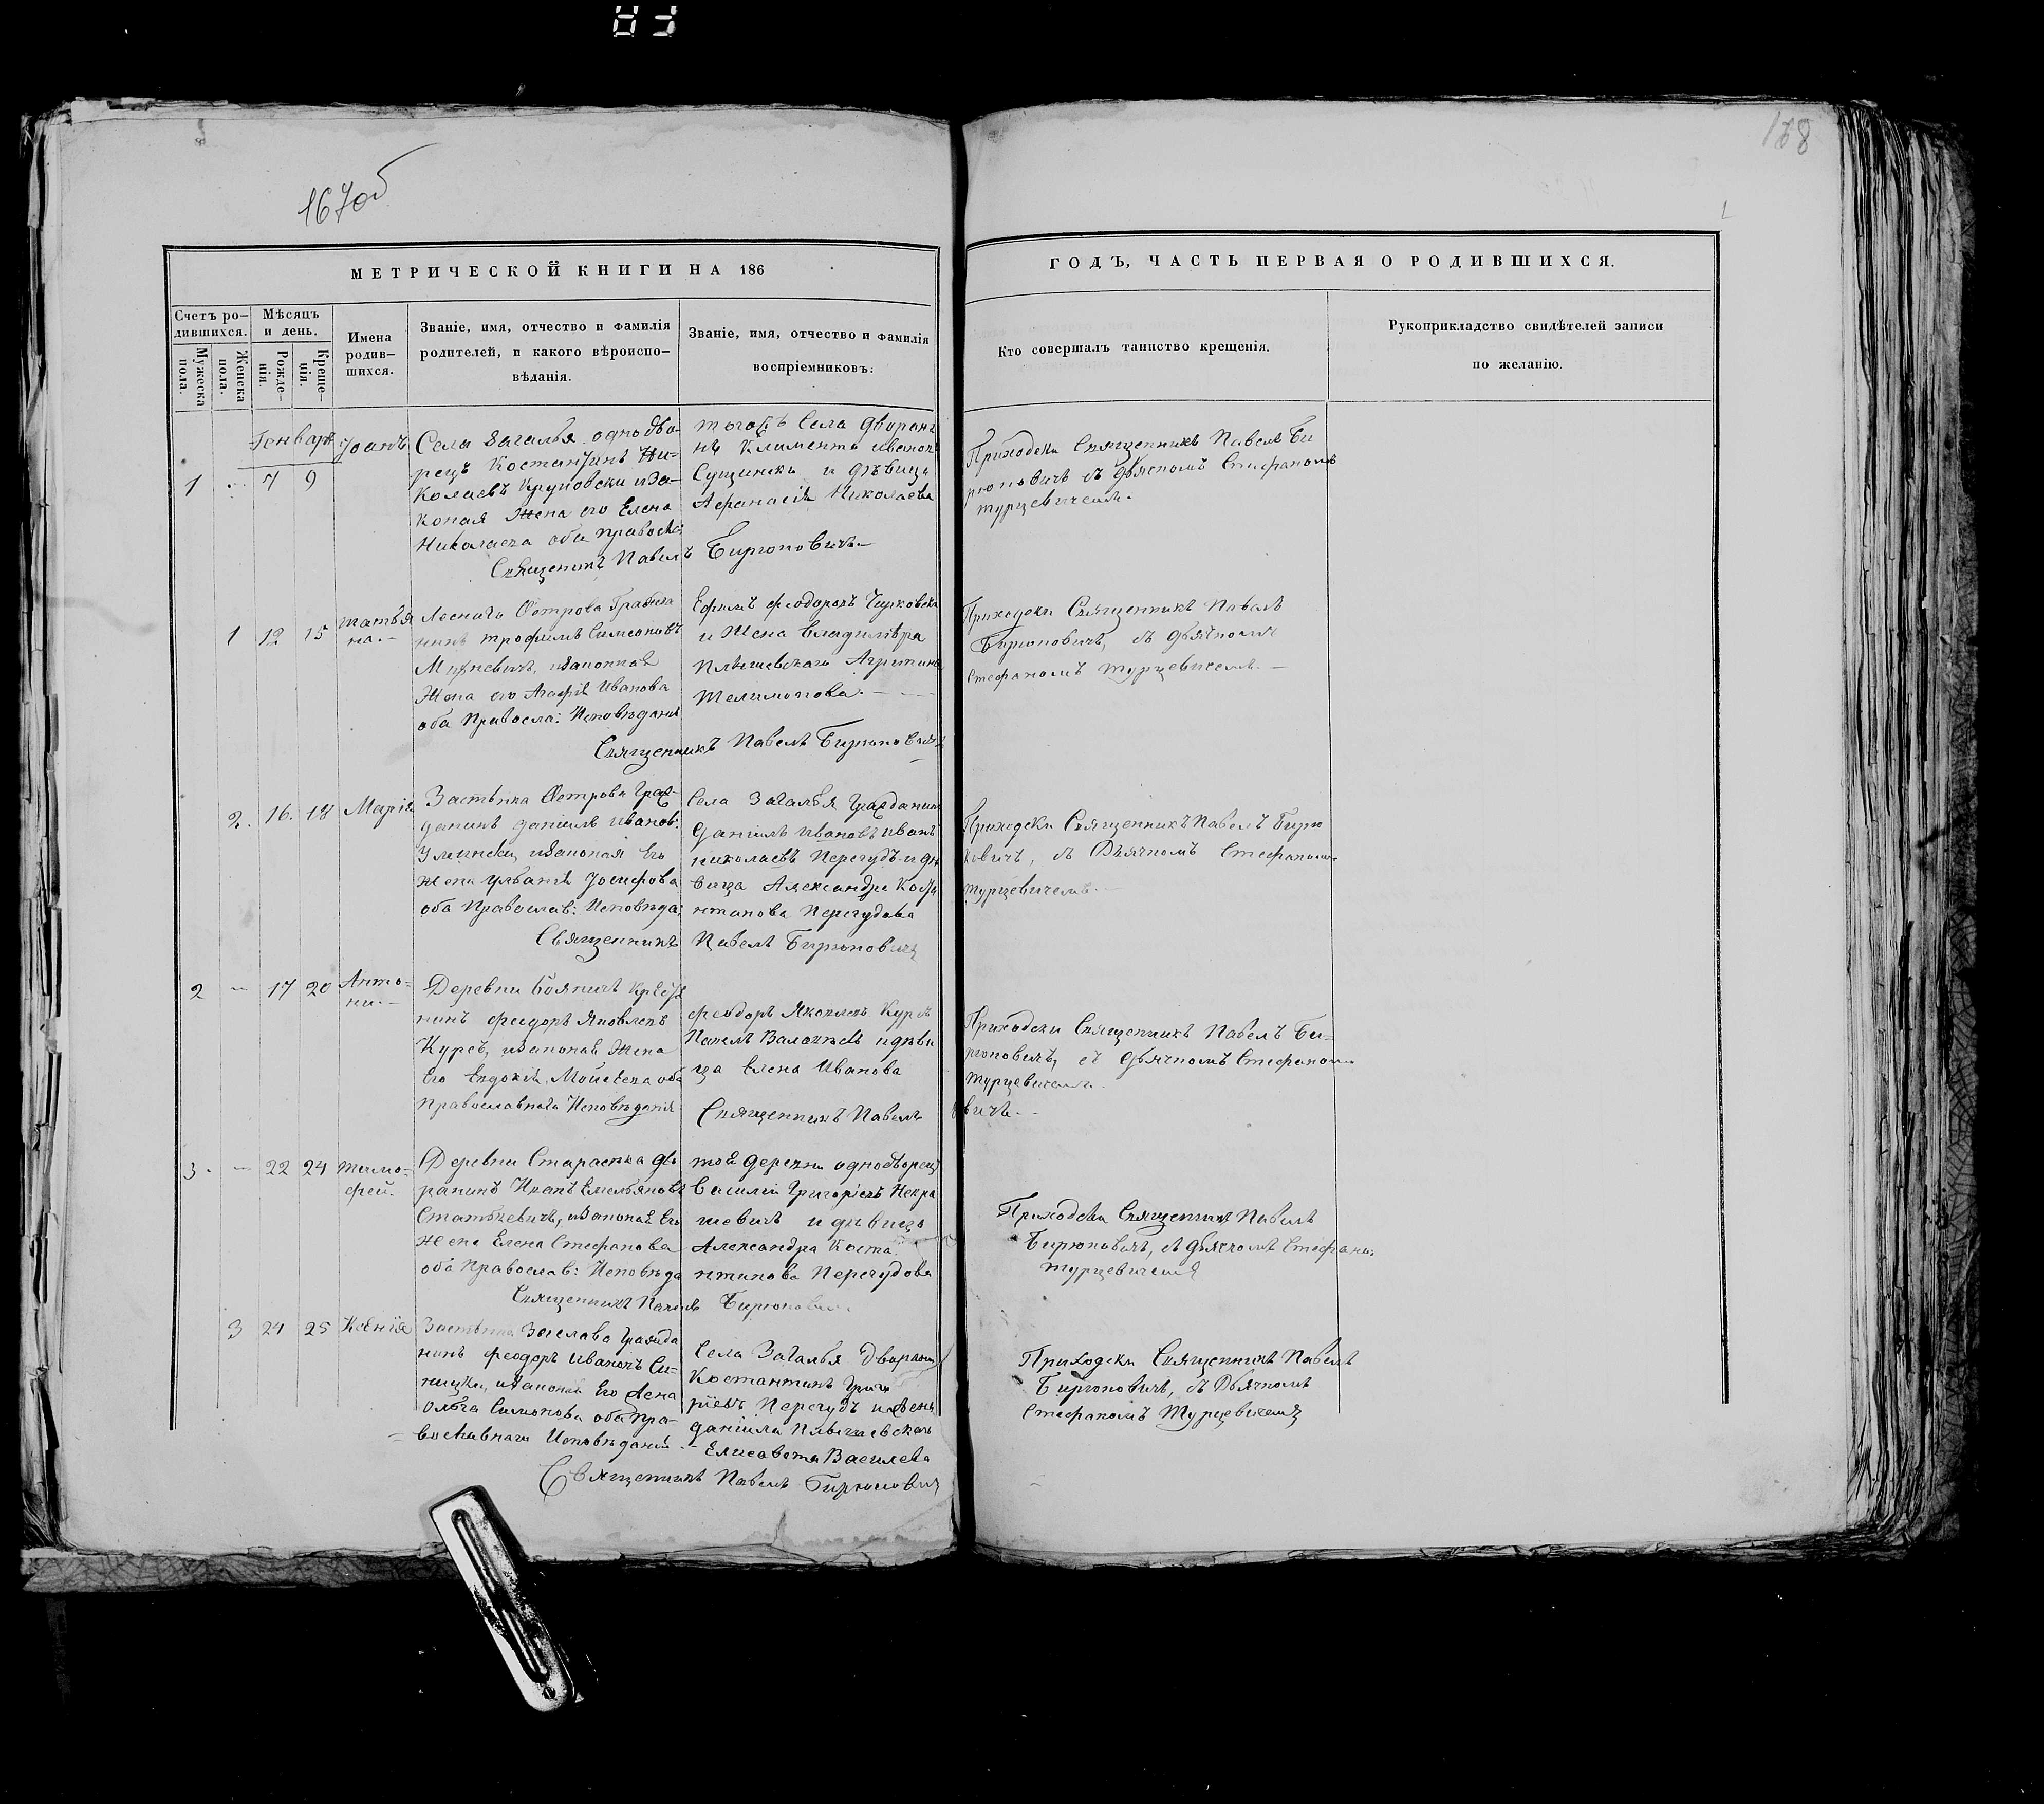 167об
168
1
МЕТРИЧЕСКОЙ КНИГИ НА 186
ГОДЪ, ЧАСТЬ ПЕРВАЯ О РОДИВШИХСЯ.
Счетъ ро–
дившихся.
Мужеска
пола.
Женска
пола.
Мѣсяцъ
и день.
Рожде–
нія.
Креще–
нія.
Имена
родив–
шихся.
Званіе, имя, отчество и фамилія
родителей, и какого вѣроиспо–
вѣданія.
Званіе, имя, отчество и фамилія
воспріемниковъ.
Кто совершалъ таинство крещенія.
Рукоприкладство свидѣтелей записи
по желанію.
Генваря
1 – 7 9
Іоанъ
Села Загалья однодво-
рецъ Костантинъ Ни-
колаевъ Круповски иза-
коная Жена его Елена
Николаева оба правосла:
тогожъ Села дворян
Климентъ иванов
Сущински и дѣвица
Афанасія Николаева
Священикъ Павелъ Бирюковичъ.–
Приходски Священникъ Павелъ Би
рюковичъ съ дьячкомъ Стефаномъ
турцевичемъ.
1 12 15
татья
на.–
Острова
трофимъ Симеоновъ
изаконная
Жена его Агафія Иванова
оба Правосла: Исповѣданія
Ефимъ феодоровъ
и Жена владимѣра
Плышевскаго
Священникъ Павелъ Бирюковичъ
Приходски Священникъ Павелъ
Бирюковичъ, съ дьячкомъ
Стефаномъ турцевичемъ.–
2. 16. 18
Марія
Застѣнка Острова граж-
данинъ даніилъ иванов:
изаконая Его
жена ульянія Іосифова
оба Православ: Исповѣда:
Села Загалья гражданин
даніилъ ивановъ иванъ
николаевъ Перегудъ и дѣ
вица Александра Коста
нтинова Перегудова
Священникъ Павелъ Бирюковичъ
Приходски Священникъ Павелъ Бирю
ковичъ, съ Дьячкомъ Стефаномъ
турцевичемъ.–
2 – 17 20
Анто=
ни.–
Деревни
нинъ феодоръ Яковлевъ
Курсъ, изаконая Жена
Его Евдокія Мойсеева оба
Православнаго Исповѣданія
феодоръ Яковлевъ
Павелъ идѣви
ца Елена Иванова
Священникъ Павелъ
вичъ.–
Приходски Священникъ Павелъ Би=
рюковичъ, съ дьячкомъ Стефаномъ
турцевичемъ.
3. – 22 24
тимо-
фей.
Деревни дво
рянинъ Иванъ Емельяновъ
Статкевичъ, изаконая Его
жена Елена Стефанова
оба Православ: Исповѣда
той деревни однодворец
Василій Григоріевъ Некра
шевичъ и дѣвица
Александра Коста
нтинова Перегудова
Священникъ Павелъ Бирюкович
Приходски Священникъ Павелъ
Бирюковичъ, съ дьячкомъ Стефано:
турцевичемъ
3 24 25
Ксенія
Застѣнка Заслава гражда
нинъ феодоръ Ивановъ Си-
ницки, изаконая Его жена
Ольга Симонова оба пра-
вославнаго Исповѣданій
Села Загалья дворянин
Костантинъ Григо
ріевъ Перегудъ и жена
даніила Плышевскаго
Елисавета Василева
Священникъ Павелъ Бирюкович
Приходски Священникъ Павелъ
Бирюковичъ, съ Дьячкомъ
Стефаномъ Турцевичемъ